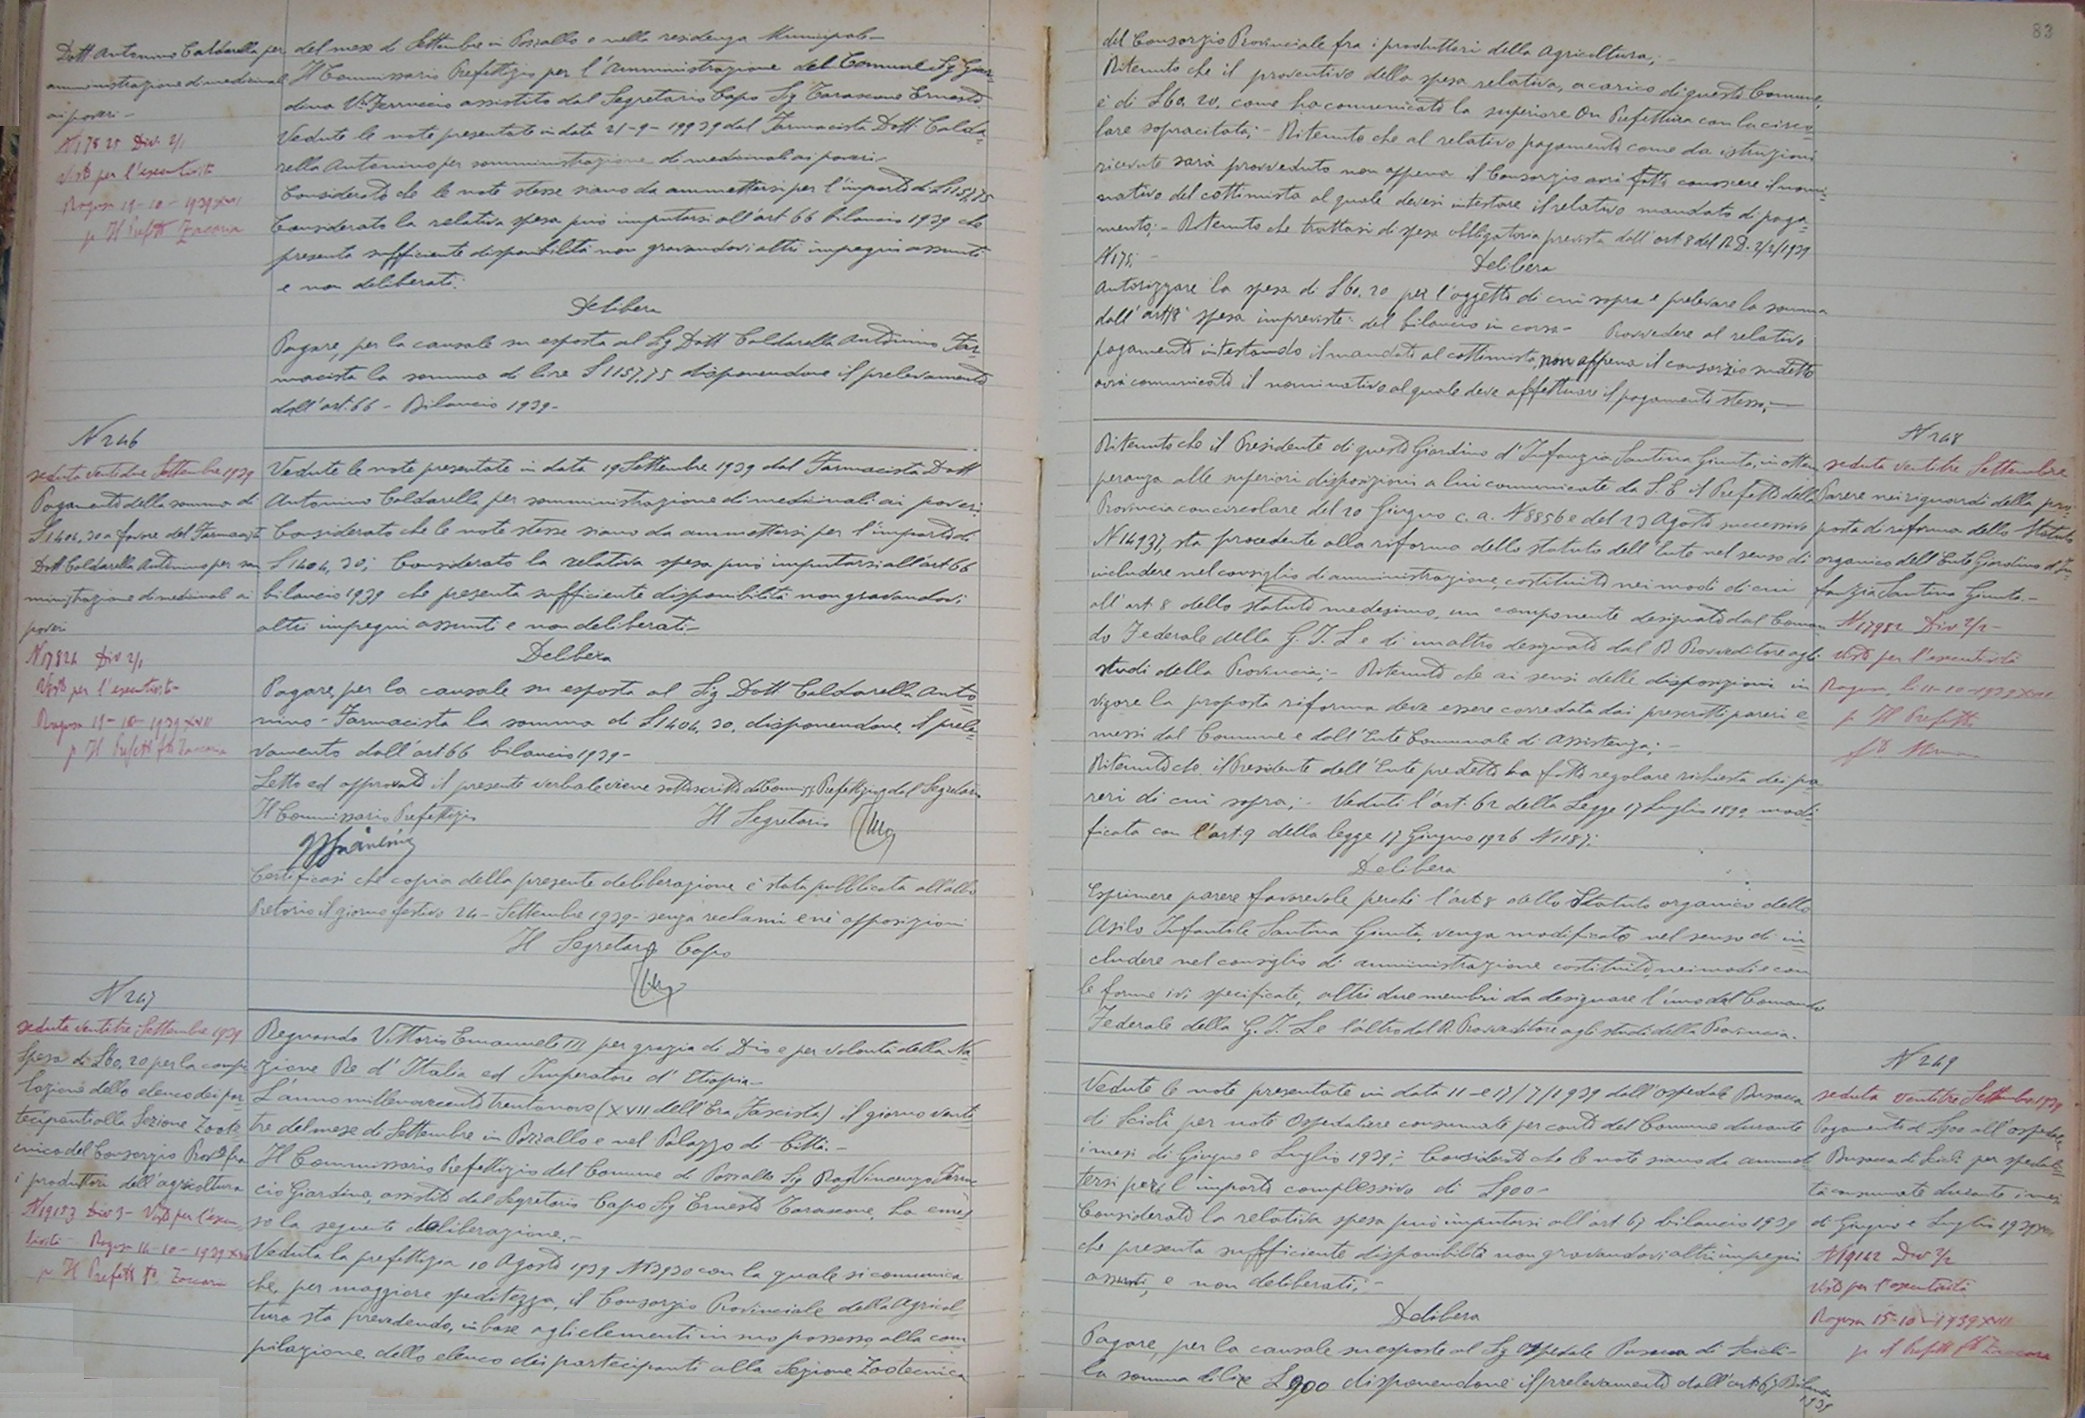 Dott Antonino Caldarella per
amministrazione di medicinali
ai poveri -
N 17825 Div. 2/1
Visto per l'esecutività
Ragusa 19-10-1939 XVII
p. Il Prefetto Zaccaria
del mese di Settembre in Pozzallo e nella residenza Municipale -
Il Commissario Prefettizio per l'Amministrazione del Comune Sig Giar=
dina V. Ferruccio assistito dal Segretario Capo Sig Tarascone Ernesto
Vedute le note presentate in data 21-9-19939 dal Farmacista Dott. Calda=
rella Antonino per somministrazione di medicinali ai poveri -
Considerato che le note stesse siano da ammettersi per l'importo di L 1157,75
Considerato la relativa spesa può imputarsi all'art 66 bilancio 1939 che
presenta sufficiente disponibilità non gravandovi altri impegni assunti
e non deliberati:
Delibera
Pagare, per la causale su esposta al Sig Dott Caldarella Antonino Far=
macista la somma di lire L 1157,75 disponendone il prelevamento
dall'art. 66 - Bilancio 1939 -
N 246
seduta ventidue Settembre 1939
Pagamento della somma di
L 1404,30 a favore del Farmacista
Dott Caldarella Antonino per som
ministrazione di medicinali ai
poveri
N 17824 Div 2/1
Visto per l'esecutività -
Ragusa 19-10-1939 XVII
p. Il Prefetto fto Zaccaria
Vedute le note presentate in data 19 Settembre 1939 dal Farmacista Dott
Antonino Caldarella per somministrazione di medicinali ai poveri;
Considerato che le note stesse siano da ammettersi per l'importo di
L 1404,30; Considerato la relativa spesa può imputarsi all'art 66
bilancio 1939 che presenta sufficiente disponibilità non gravandovi
altri impegni assunti e non deliberati -
Delibera
Pagare, per la causale su esposta al Sig Dott Caldarella Anto=
nino - Farmacista la somma di L 1404,30, disponendone il prele=
vamento dall'art 66 bilancio 1939 -
Letto ed approvato il presente verbale viene sottoscritto dal Comiss Prefettizio e dal Segretario
Il Commissario Prefettizio Il Segretario
Certificasi che copia della presente deliberazione è stata pubblicata all'albo
Pretorio il giorno festivo 24 - Settembre 1939 - senza reclami e nè opposizioni
Il Segretario Capo
N 247
seduta ventitre Settembre 1939
Spesa di L 60,20 per la compi
lazione dello elenco dei par=
tecipanti alla Sezione Zoote=
cnica del Consorzio Prov. fra
i produttori dell'agricoltura
N 19183 Div 3 - Visto per l'esecu
tività - Ragusa 14-10-1939 XVII
p. Il Prefetto fto Zaccaria
Regnando Vittorio Emanuele III per grazia di Dio e per volontà della Na=
zione Re d'Italia ed Imperatore d'Etiopia -
L'anno millenovecentotrentanove (XVII dell'Era Fascista) il giorno venti=
tre del mese di Settembre in Pozzallo e nel Palazzo di Città. -
Il Commissario Prefettizio del Comune di Pozzallo Sig Rag Vincenzo Ferruc
cio Giardina, assistito dal Segretario Capo Sig Ernesto Tarascone, ha emes=
so la seguente deliberazione. -
Veduta la prefettizia 10 Agosto 1939 N 13930 con la quale si comunica
che, per maggiore speditezza, il Consorzio Provinciale della Agricol=
tura sta prevedendo, in base agli elementi in suo possesso, alla com
pilazione dello elenco dei partecipanti alla Sezione Zootecnica
83
del Consorzio Provinciale fra i produttori della Agricoltura; -
Ritenuto che il preventivo della spesa relativa, a carico di questo Comune,
è di L 60,20, come ha comunicato la superiore On Prefettura con la circo
lare sopracitata; - Ritenuto che al relativo pagamento come da istruzioni
ricevute sarà provveduto non appena il Consorzio avrà fatto conoscere il nomi=
nativo del cottimista al quale devesi intestare il relativo mandato di paga=
mento; - Ritenuto che trattasi di spesa obbligatoria prevista dall'art 8 del R.D. 2/2/1939
N 175; -
Delibera
Autorizzare la spesa di L 60,20 per l'oggetto di cui sopra e prelevare la somma
dall'art 78 spesa impreviste: del bilancio in corso - Provvedere al relativo
pagamento intestando il mandato al cottimista, non appena il consorzio sudetto
avrà comunicato il nominativo al quale deve affettuare il pagamento stesso; -
N 248
seduta ventitre Settembre
Parere nei riguardi della pro
posta di riforma dello Statuto
organico dell'Ente Giardino d'In=
fanzia Santina Giunta. -
N 17982 Div 2/2 -
Visto per l'esecutività
Ragusa, lì 11-10-1939 XVII
p. Il Prefetto
Ritenuto che il Presidente di questo Giardino d'Infanzia Santina Giunta, in ottem
peranza alle superiori disposizioni a lui comunicate da S.E. il Prefetto della
Provincia con circolare del 20 Giugno c.a. N 8856 e del 23 Agosto successivo
N 14937, sta procedente alla riforma dello statuto dell'Ente nel senso di
includere nel consiglio di amministrazione, costituito nei modi di cui
all'art 8 dello statuto medesimo, un componente designato dal Coman
do Federale della G.I.L e di un altro designato dal R Provveditore agli
studi della Provincia; - Ritenuto che ai sensi delle disposizioni in
vigore la proposta riforma deve essere corredata dai prescritti pareri e=
messi dal Comune e dall'Ente Comunale di Assistenza; -
Ritenuto che il Presidente dell'Ente predetto ha fatto regolare richiesta dei pa=
reri di cui sopra; - Veduti l'art. 62 della Legge 17 Luglio 1890 modi=
ficata con l'art. 9 della legge 17 Giugno 1926 N 1187;
Delibera
Esprimere parere favorevole perchè l'art 8 dello Statuto organico dello
Asilo Infantile Santina Giunta, venga modificato nel senso di in=
cludere nel consiglio di amministrazione costituito, nei modi e con
le forme ivi specificate, altri due membri da designare l'uno dal Comando
Federale della G.I.L e l'altro dal R. Provveditore agli studi della Provincia. -
N 249
seduta ventitre Settembre 1939
Pagamento di L 900 all'ospedale
Busacca di Scicli per spedali=
tà consumate durante i mesi
di Giugno e Luglio 1939 XVII
N 19142 Div 2/2
Visto per l'esecutività
Ragusa 15-10-1939 XVII
p. Il Prefetto fto Zaccaria
Vedute le note presentate in data 11 e 17/7/1939 dall'ospedale Busacca
di Scicli per note Ospedaliere consumate per conto del Comune durante
i mesi di Giugno e Luglio 1939; - Considerato che le note siano da ammet
tersi per l'importo complessivo di L 900 -
Considerato la relativa spesa può imputarsi all'art 67 bilancio 1939
che presenta sufficiente disponibilità non gravandovi altri impegni
assunti, e non deliberati; -
Delibera
Pagare, per la causale su esposta al Sig Ospedale Busacca di Scicli -
la somma di lire L 900 disponendone il prelevamento dall'art. 67 Bilancio
1939